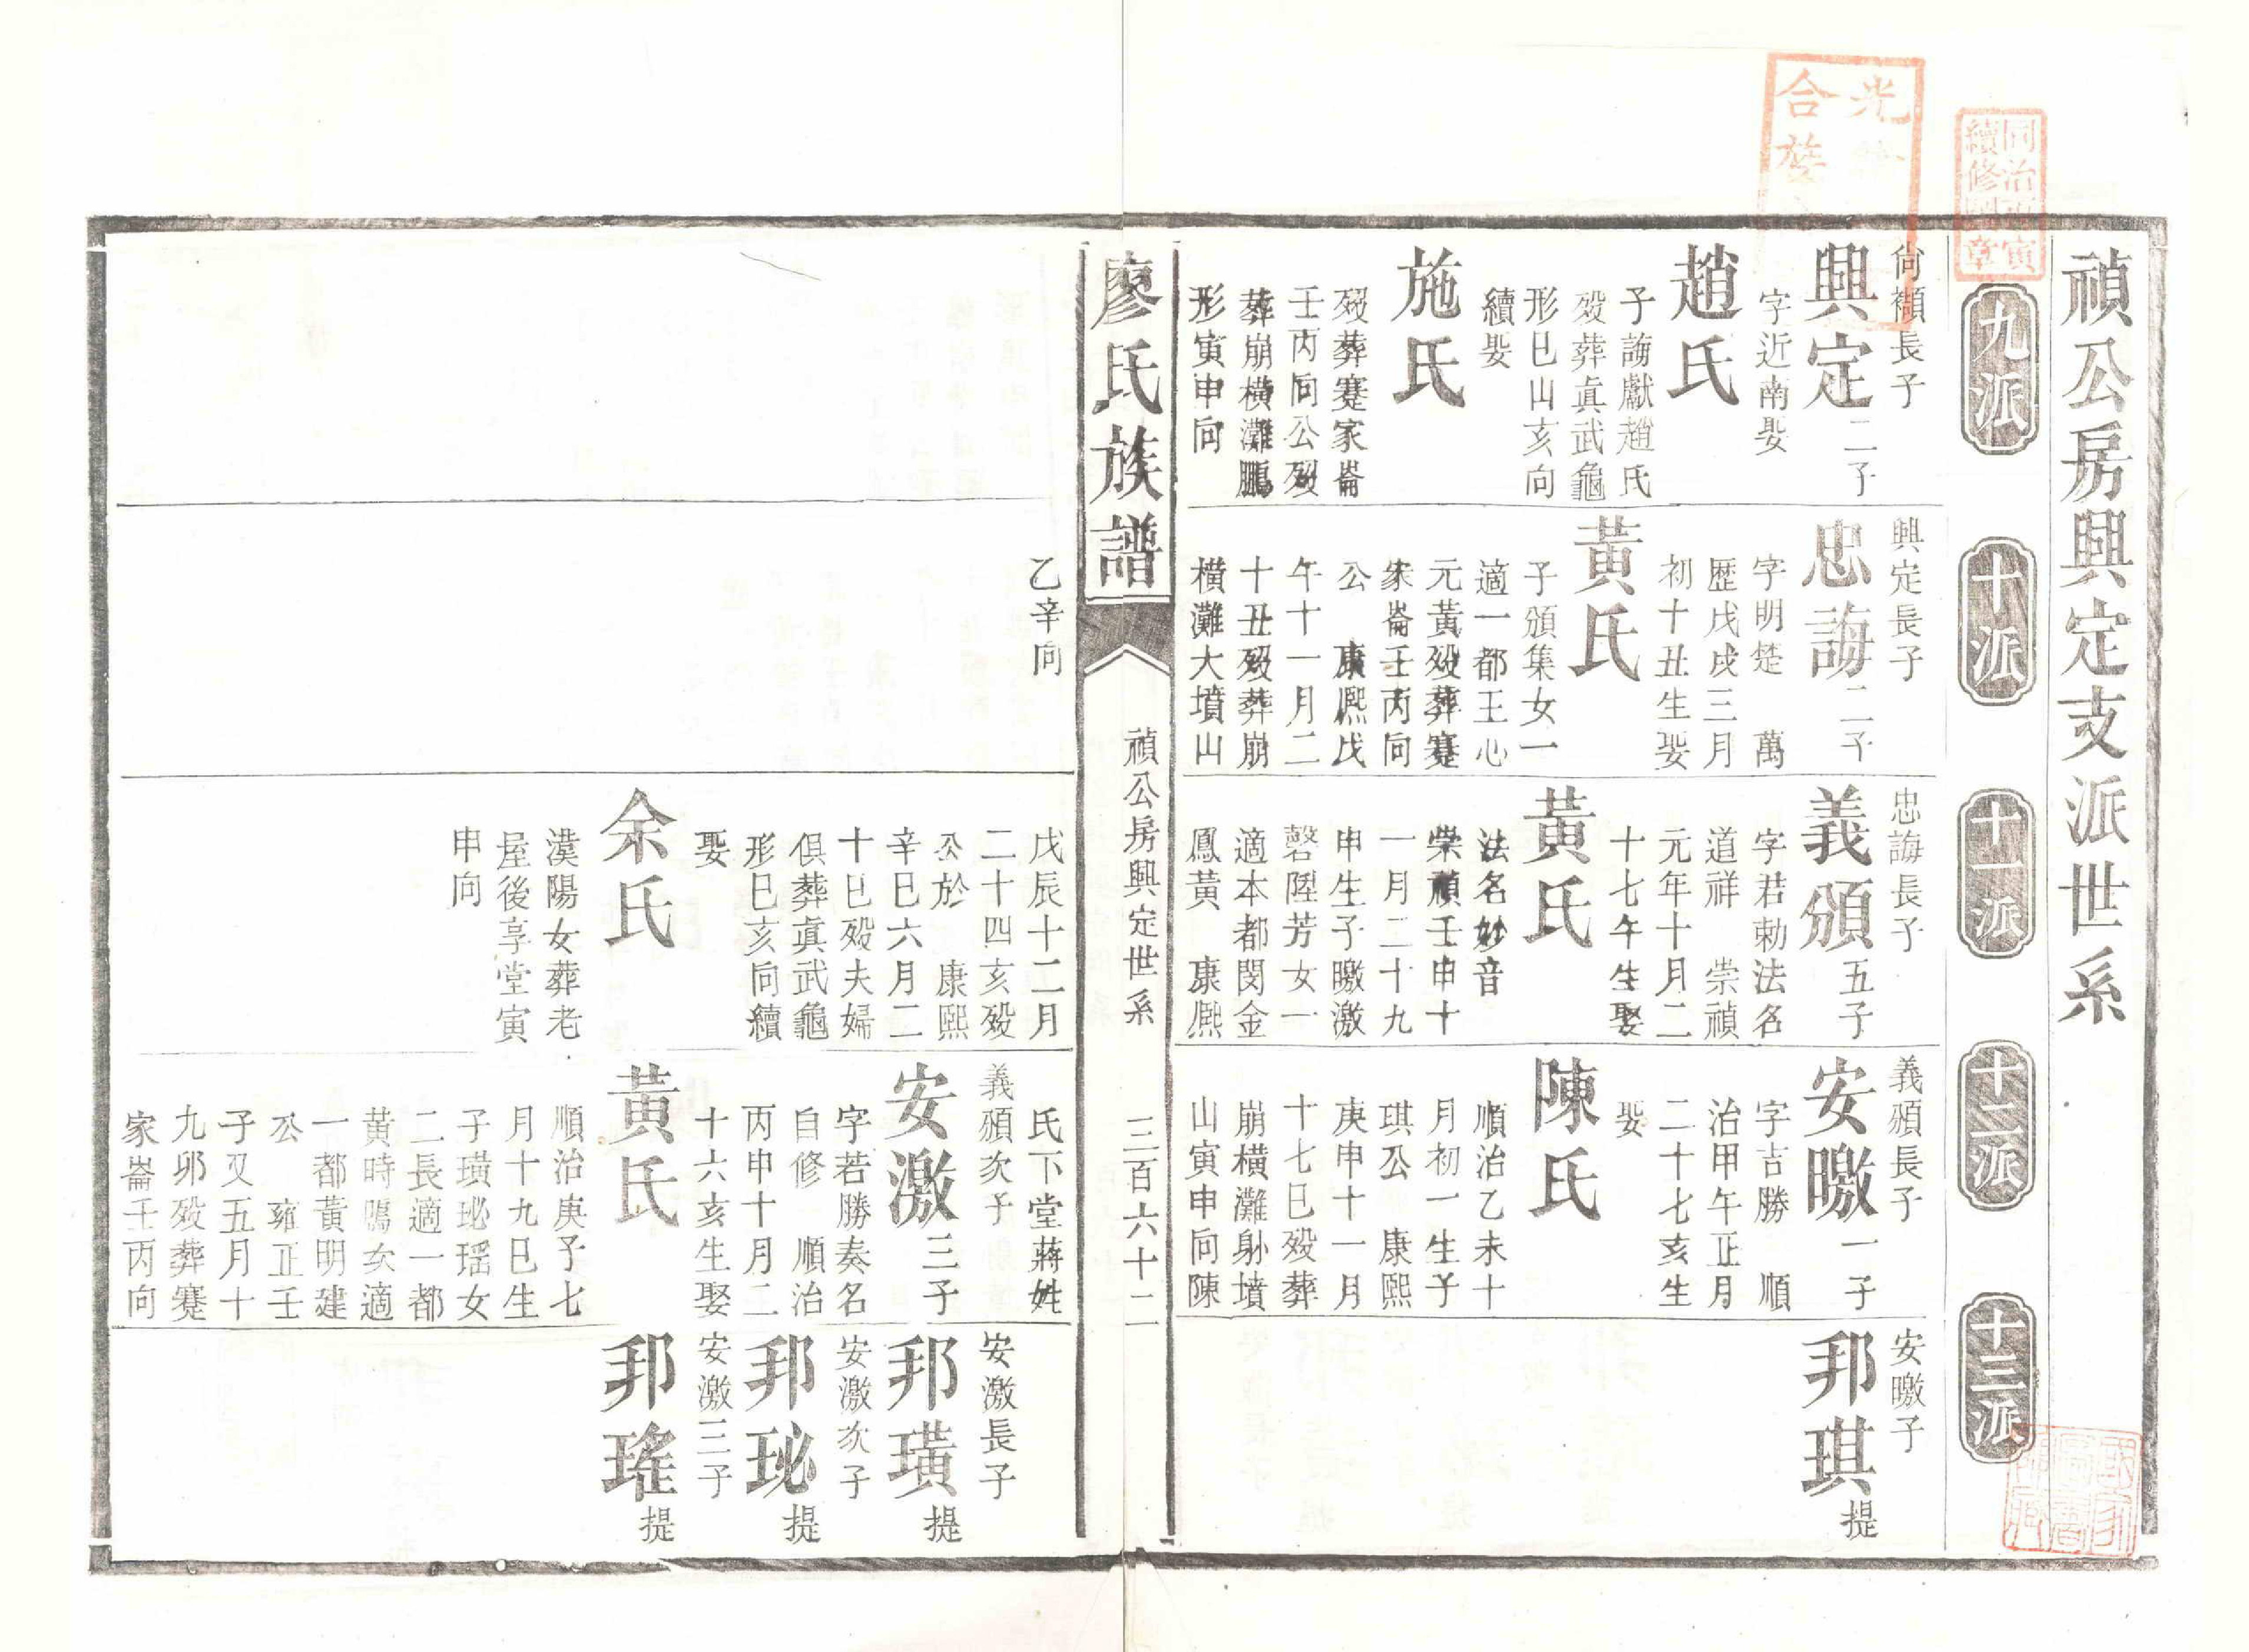 禎公房興定支派世系
同治丙寅
續修圖章
光
合族
九派
尙襭長子
興定二子
字近南娶
趙氏
子誨獻趙氏
歿葬眞武龜
形巳山亥向
續娶
施氏
歿葬蹇家崙
壬丙向公歿
葬崩橫灘鵬
形寅申向
十派
興定長子
忠誨二子
字明楚　萬
歷戊戌三月
初十丑生娶
黃氏
子頒集女一
適一都王心
元黃歿葬蹇
家崙壬丙向
公　康熙戊
午十一月二
十丑歿葬崩
橫灘大墳山
乙辛向
十一派
忠誨長子
義頒五子
字君勅法名
道祥　崇禎
元年十月二
十七午生娶
黃氏
法名妙音
崇禎壬申十
一月二十九
申生子曒激
磬陞芳女一
適本都閔金
鳳黃　康熙
戊辰十二月
二十四亥歿
公於　康熙
辛巳六月二
十巳歿夫婦
俱葬眞武龜
形巳亥向續
娶
余氏
漢陽女葬老
屋後享堂寅
申向
十二派
義頒長子
安曒一子
字吉勝　順
治甲午正月
二十七亥生
娶
陳氏
順治乙未十
月初一生子
琪公　康熙
庚申十一月
十七巳歿葬
崩橫灘躲墳
山寅申向陳
氏下堂蔣姓
義頒次子
安激三子
字若勝奏名
自修　順治
丙申十月二
十六亥生娶
黃氏
順治庚子七
月十九巳生
子璜珌瑶女
二長適一都
黃時鳴次適
一都黃明建
公　雍正壬
子又五月十
九夘歿葬蹇
家崙壬丙向
十三派
安曒子
邦琪提
安激長子
邦璜提
安激次子
邦珌提
安激三子
邦瑤提
廖氏族譜
禎公房興定世系
三百六十二